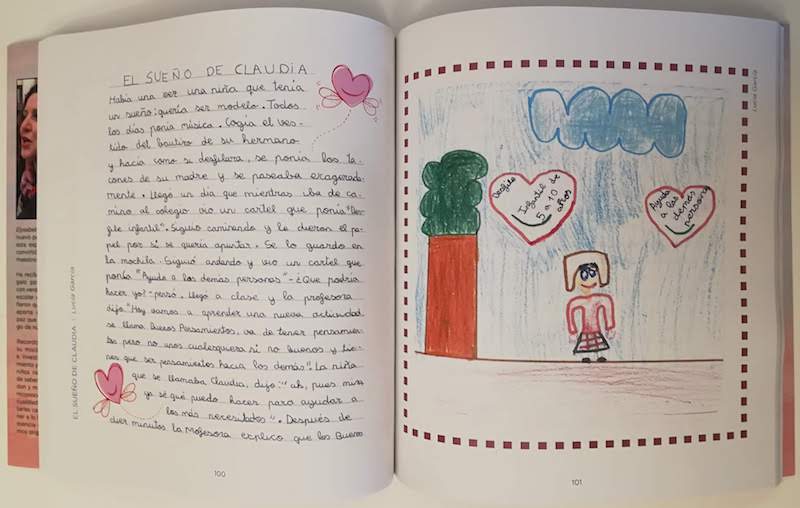 EL SUEÑO DE CLAUDIA
Había una vez una niña que tenía
un sueño: quería ser modelo. Todos
los días ponía música. Cogía el ves-
tido del bautizo de su hermano
y hacía como si desfilara, se ponía los ta-
cones de su madre y se paseaba exagerada-
mente. Llegó un día que mientras iba de ca-
mino al colegio vio un cartel que ponía "Des-
file infantil". Siguió caminando y le dieron el pa-
pel por si se quería apuntar. Se lo guardo en
la mochila. Siguió andando y vio un cartel que
ponía "Ayuda a los demás personas" -¿Que podría
hacer yo?- pensó. Llegó a clase y la profesora
dijo: "Hoy vamos a aprender una nueva actividad
se llama Buenos Pensamientos, va de tener pensamien-
tos pero no unos cualesquiera si no buenos y tie-
nes que ser pensamientos hacia los demás". La niña
que se llamaba Claudia, dijo: "ah, pues mira
ya sé qué puedo hacer para ayudar a
los más necesitados". Después de
diez minutos la Profesora explico que los Buenos
EL SUEÑO DE CLAUDIA | Lucía García
100
Lucía García
Desfile
Infantil de
5 a 10
años
Ayuda
a las
demás
personas
101